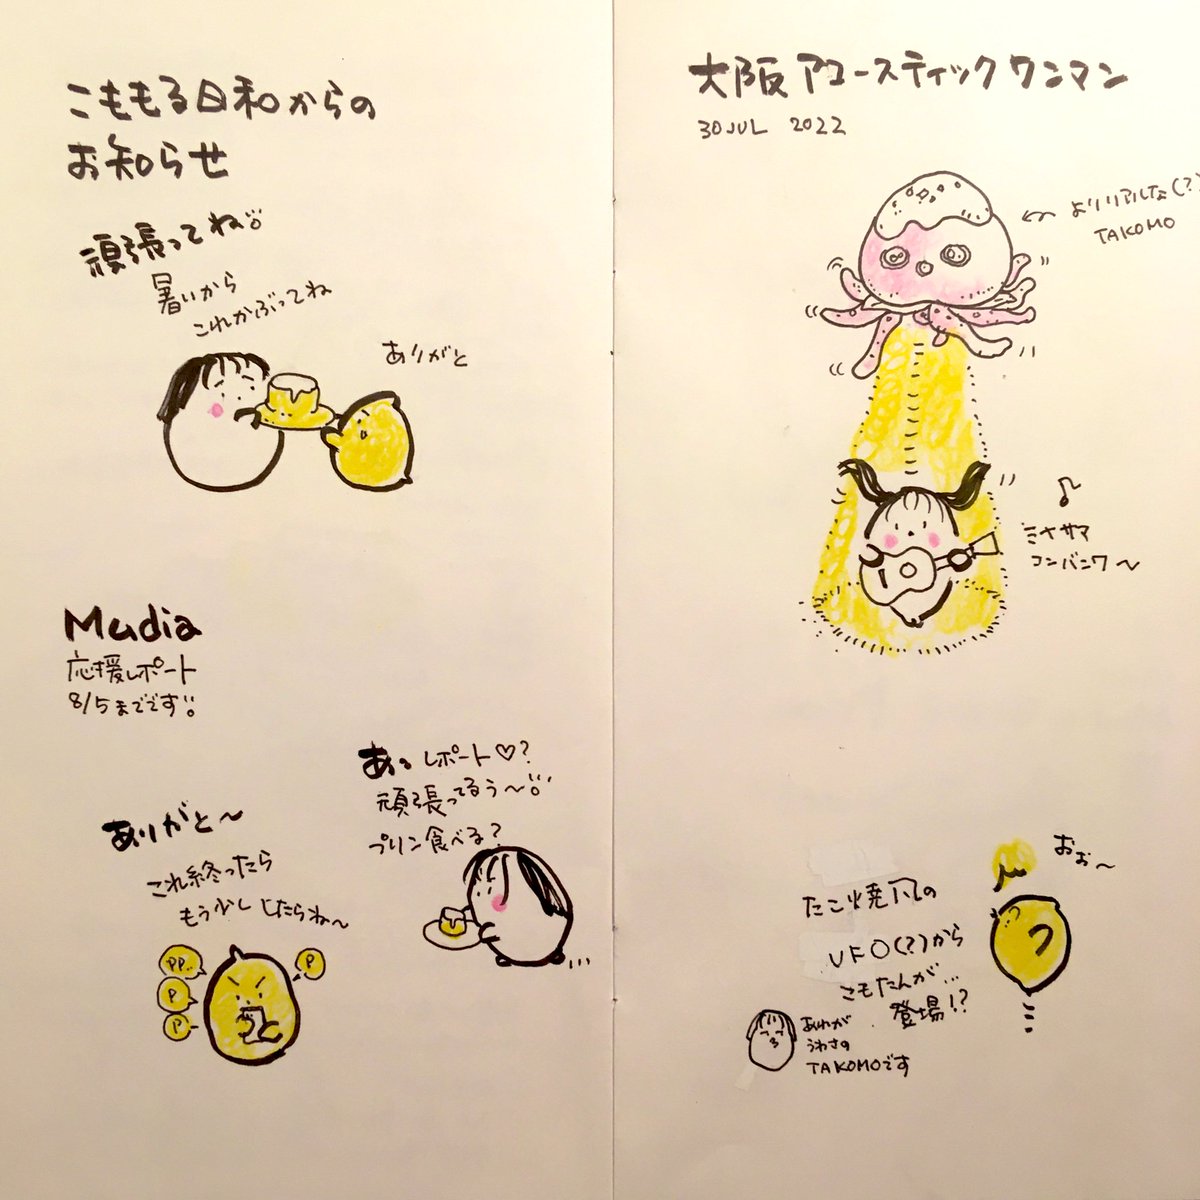 こももる日和からの
お知らせ
頑張ってね
暑いから
これかぶってね
ありがと
Mudia
応援レポート
8/5までです
あっ レポート♡?
頑張ってるぅ〜
プリン食べる?
ありがと〜
これ終ったら
もう少ししたらね〜
PP..
P
P
P
大阪アコースティックワンマン
30 JUL 2022
よりリアルな(?)
TAKOMO
♪
ミナサマ
コンバンワ〜
おぉ〜
たこ焼風の
UFO(?)から
こもたんが...
登場!?
あれが
うわさの
TAKOMOです